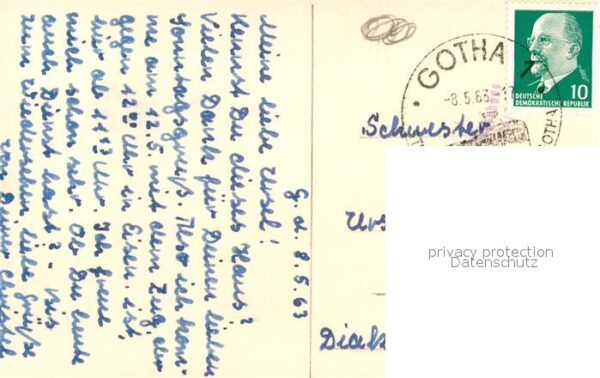 G. d. 8.5.63
Meine liebe Ursel!
Kennst Du dieses Haus?
Vielen Dank für Deinen lieben
Sonntagsgruß. Also ich kom-
me am 12.5. mit dem Zug der
gegen 12 Uhr in Eisen. ist,
für ab 11 Uhr. Ich freue
mich schon sehr. Ob Du heute
auch Dienst hast? - Bis
zum Wiedersehen liebe Grüße
von Deiner Christel
GOTHA 1
-8.5.63.-17
GOTHA
DEUTSCHE
DEMOKRATISCHE REPUBLIK
10
Schwester
Urs
Diak
privacy protection
Datenschutz